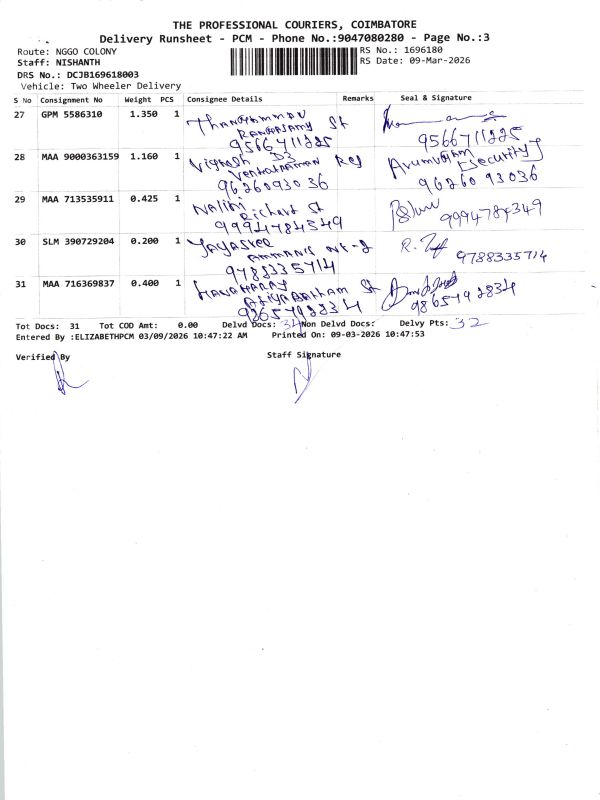 THE PROFESSIONAL COURIERS, COIMBATORE
Delivery Runsheet - PCM - Phone No.:9047080280 - Page No.:3
Route: NGGO COLONY
RS No.: 1696180
Staff: NISHANTH
RS Date: 09-Mar-2026
DRS No.: DCJB169618003
Vehicle: Two Wheeler Delivery
S No Consignment No Weight PCS Consignee Details Remarks Seal & Signature
27 GPM 5586310 1.350 1 St
9566711225 9566711225
28 MAA 9000363159 1.160 1 Vignesh D3 Arumugam
Venkatraman Res (security)
9626093036 96260 93036
29 MAA 713535911 0.425 1 Nalini
Richard St
9994784349 9994784349
30 SLM 390729204 0.200 1 Jayasree R.
9788335714 9788335714
31 MAA 716369837 0.400 1 St
9865792834 9865792834
Tot Docs: 31 Tot COD Amt: 0.00 Delvd Docs: Non Delvd Docs: Delvy Pts: 32
Entered By :ELIZABETHPCM 03/09/2026 10:47:22 AM Printed On: 09-03-2026 10:47:53
Verified By Staff Signature